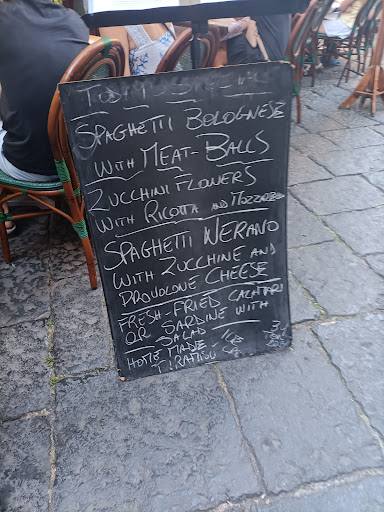 TODAY'S SPECIALS
SPAGHETTI BOLOGNESE
WITH MEAT-BALLS
ZUCCHINI FLOWERS
WITH RICOTTA AND MOZZARELLA
SPAGHETTI NERANO
WITH ZUCCHINE AND
PROVOLONE CHEESE
FRESH-FRIED CALAMARI
OR SARDINE WITH
SALAD
HOME MADE
TIRAMISU